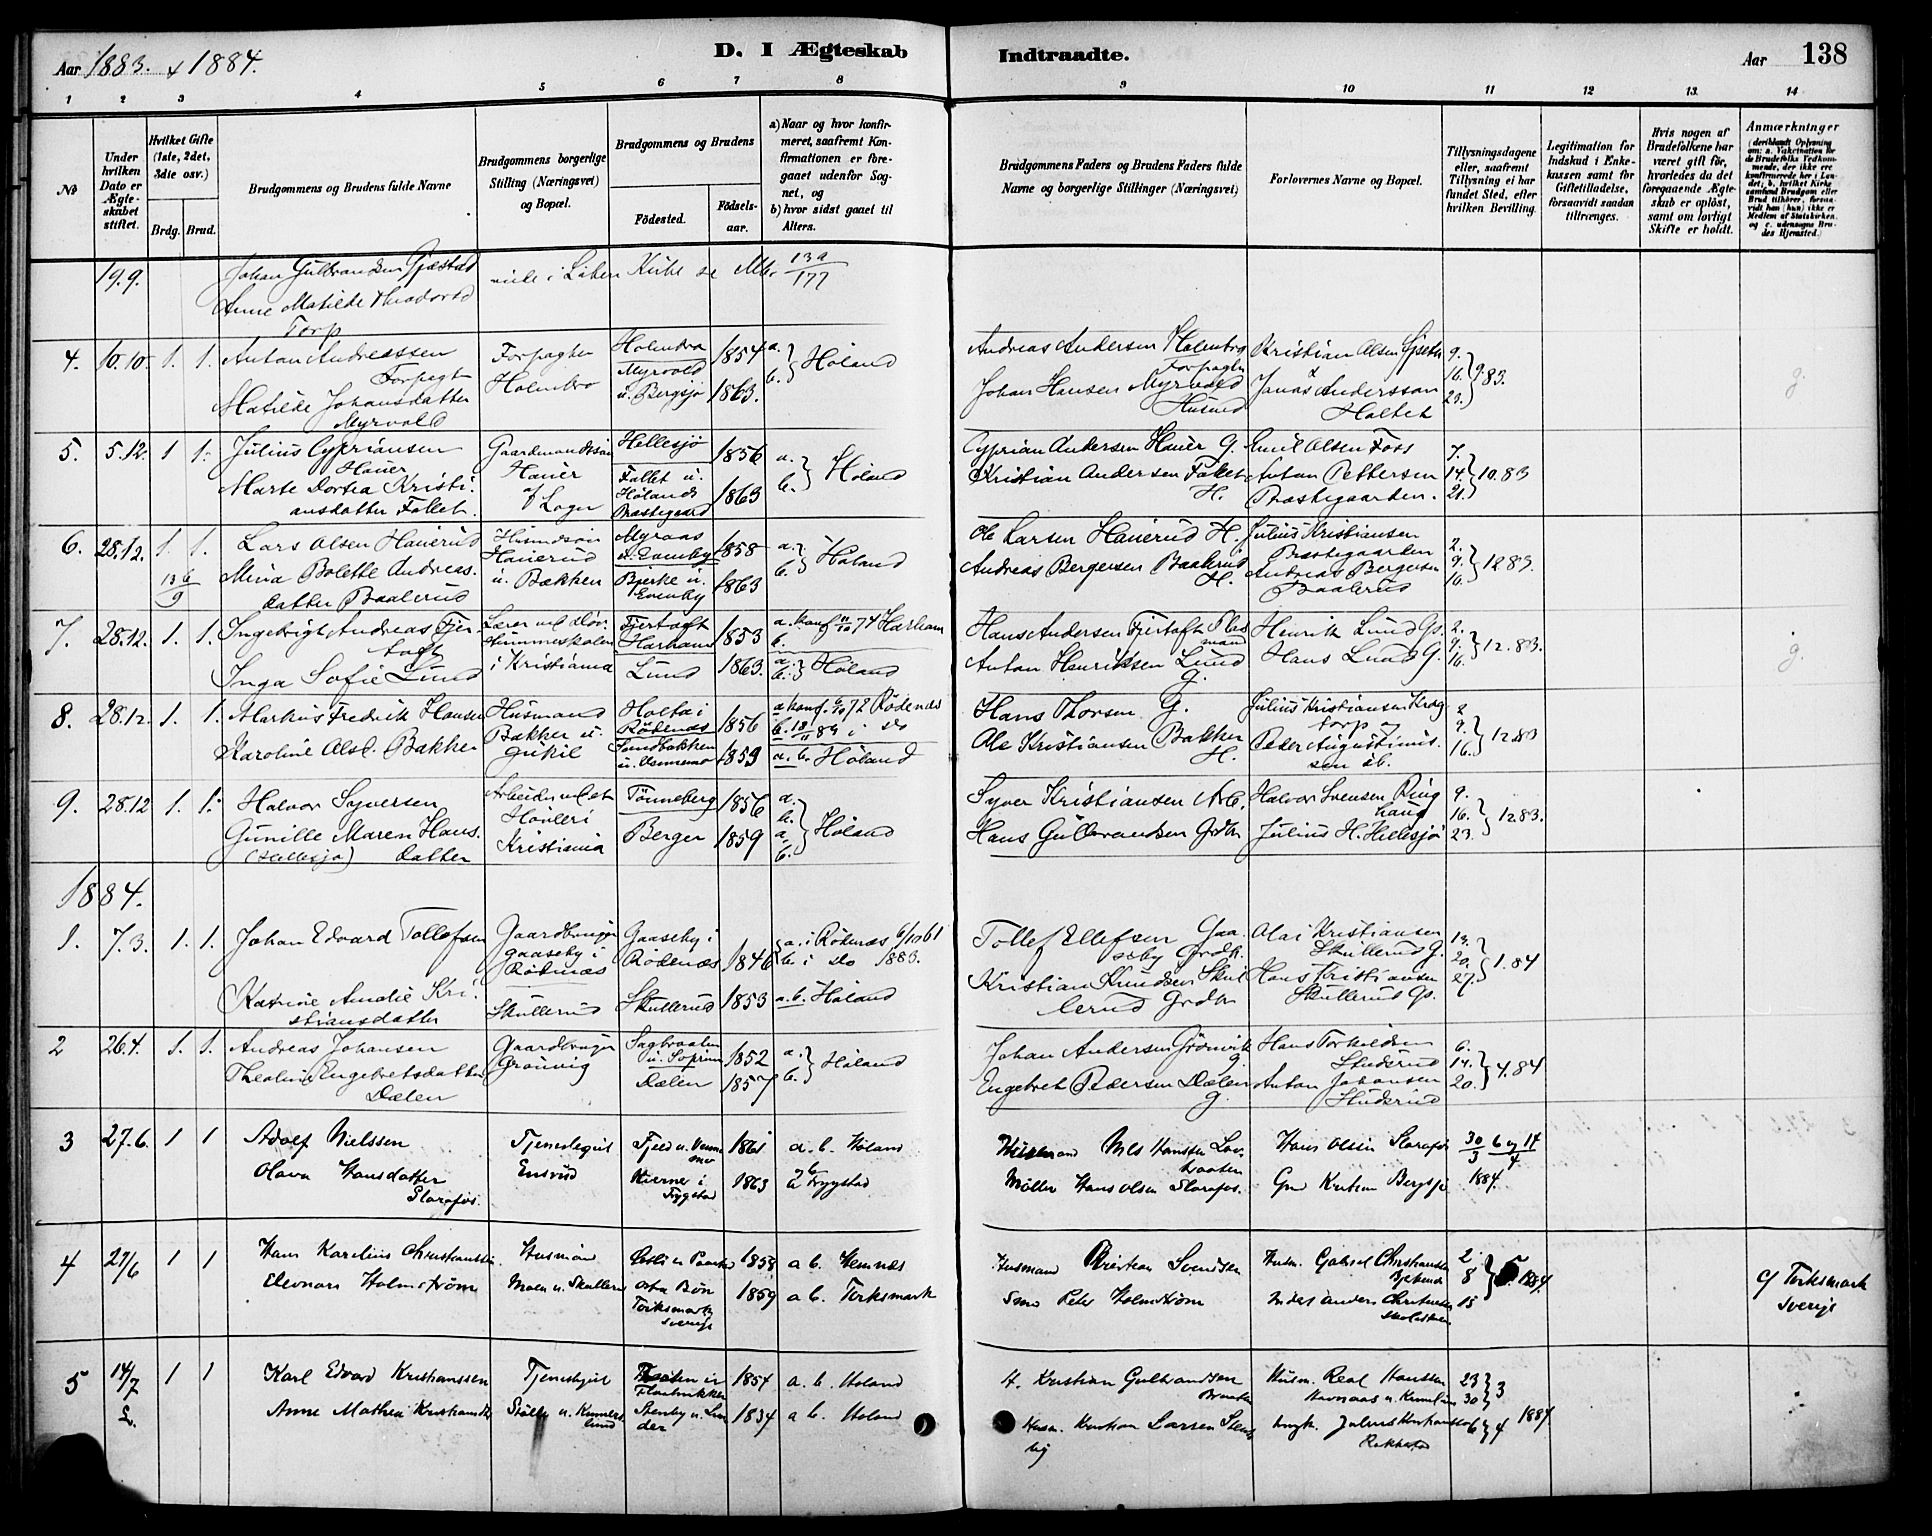 Aar 1883. & 1884.
D. I Ægteskab
Indtraadte.
Aar 138
1 2 3 4 5 6 7 8 9 10 11 12 13. 14
No
Under hvilken Dato er Ægteskabet stiftet.
Hvilket Gifte (1ste, 2det, 3die osv.)
Brdg. Brud.
Brudgommens og Brudens fulde Navne
Brudgommens borgerlige Stilling (Næringsvei) og Bopæl.
Brudgommens og Brudens
Födested.
Födselsaar.
a) Naar og hvor konfirmeret, saafremt Konfirmationen er foregaaet udenfor Sognet, og
b) hvor sidst gaaet til Alters.
Brudgommens Faders og Brudens Faders fulde Navne og borgerlige Stillinger (Næringsvei)
Forlovernes Navne og Bopæl.
Tillysningsdagene eller, saafremt Tillysning ei har fundet Sted, efter hvilken Bevilling.
Legitimation for Indskud i Enkekassen samt for Giftetilladelse, forsaavidt saadan tiltrænges.
Hvis nogen af Brudefolkene har været gift för, hvorledes da det foregaaende Ægteskab er oplöst, samt om lovligt Skifte er holdt.
Anmærkninger
19.9. Johan Gulbrandsen
Anne Matilde
Torp
4. 10.10. 1. 1. Anton Andreassen
Forpagt
Matilde Johansdatter
Myrvold
Forpagter
Holmbro
Myrvold
u. Bergsjö
1854
1863.
a.
b. } Höland
Andreas Andersen Holmbro
Forpagter
Johan Hansen Myrvold
Husmd
Kristian Olsen
Jonas Anderssen
Holtet
9.
16. } 9.83.
23.
g.
5. 5.12. 1 1. Julius Cypriansen
Hauer
Marte Dortea Kristi-
ansdatter Fallet.
Gaardmandssön
Hauer
af Loger
Hellesjö
Fallet u.
Hölands
Præstegaard
1856
1863
a.
b. } Höland
Cyprian Andersen Hauer G.
Kristian Andersen Fallet
H.
Emil Olsen Foss
Anton Pettersen
Præstegaarden.
7.
14. } 10.83
21.
6. 28.12. 1. 1. Lars Olsen Hauerud
Mina Bolette Andreas-
datter Baalerud
Husmdsön
Hauerud
u. Bakken
Myraas
u. Evenby
Bjerke u.
Evenby
1858
1863
a.
b. } Höland
Ole Larsen Hauerud H.
Andreas Bergersen Baalerud
H.
Julius Kristiansen
Præstegaarden
Andreas Bergersen
Baalerud
2.
9. } 12.83.
16.
7. 28.12. 1. 1. Ingebrigt Andreas Fjer-
toft
Inga Sofie Lund
Lærer ved Döv-
stummeskolen
i Kristiania
Fjertoft
Harham
Lund
1853
1863.
a. konf. 74 Harham
b.
a.
b. } Höland
Hans Andersen Fjertoft Plad
mand
Anton Henriksen Lund
G.
Henrik Lund Gs.
Hans Lund G.
2.
9. } 12.83.
16.
g.
8. 28.12. 1. 1. Markus Fredrik Hansen
Karoline Olsd. Bakken
Husmand
Bakken u.
Holta i
Rödenes
Sundbakken
1856
1859
a konf. 72 Rödenes
b. i do
a. b. Höland
Hans Thorsen G.
Ole Kristiansen Bakken
H.
Julius Kristiansen Krog
torp og
Peder Augustinus-
sen ib.
2
9. } 12.83
16.
9. 28.12 1. 1. Halvor Syversen
Gunille Maren Hans-
(Hellesjö) datter
Arbeider ved et
Hövleri
Kristiania
Tönneberg
Berger
1856
1859
a.
b.
a.
b. } Höland
Syver Kristiansen Arb.
Hans Gulbrandsen Grdbr
Halvor Svensen Ring
haug
Julius H. Hellesjö
9.
16. } 12.83.
23.
1884.
1. 7.3. 1. 1. Johan Edvard Tollefsen
Katrine Amalie Kri-
stiansdatter
Gaardbruger
Gaaseby i
Rödenæs
Skullerud
Gaaseby i
Rödenæs
Skullerud
1846
1853
a. i Rödenæs 6/10 61
b. i do 1883.
a. b. Höland
Tollef Ellefsen Gaa-
seby Grdbr.
Kristian Knudsen Skul
lerud Grdbr
Olai Kristiansen
Skullerud G.
Hans Kristiansen
Skullerud Gs.
13.
20. } 1.84
27.
2 26.4. 1. 1. Andreas Johansen
Theoline Engebretsdatter
Dælen
Gaardbruger
Grönvig
Sagbraaten
u. Soprim
Dælen
1852
1857
a.
b. } Höland
Johan Andersen Grönvik
G.
Engebret Pedersen Dælen
G.
Hans Torkildsen
Studsrud
Anton Johansen
Studsrud
6.
14. } 4.84
20.
3 27.6. 1 1 Adolf Nielssen
Olava Hansdatter
Slorafos.
Tjenestegut
Ensrud
Fjeld u. Venne
mo
Kierner i
Trygstad
1861
1863
a. b. Höland
a b Trygstad
Husmand Nils Hanssen Lav
braaten
Møller Hans Olsen Slorafos.
Hans Olsen Slorafos
Grd Kristian Bergsjø
30/3 6 og 14/4
1884.
4 27/6 1 1 Hans Karelius Christianssen.
Eleonora Holmstrøm
Husmand
Moen u. Skullerud
Torksmark
Sverige
1858
1859
a b. Hemnæs
a b. Torksmark
Husmand Kristian Svendsen
Smd Peter Holmstrøm
Husm. Gabriel Christiansen
Anders Christiansen
2
8 } 5 1884.
15
Torksmark
Sverige
5 14/7 1 1 Karl Edvard Kristianssen
Anne Mathea Kristiansdt
Tjenestegut
1854
1834
a. b. Höland
a b. Höland
H. Kristian Gulbrandsen
Braaten
Husm. Kristian Larsen Sten
by
Husm. Real Hanssen
Julius Kristiansen
23
30 } 3
6 } 4 1884